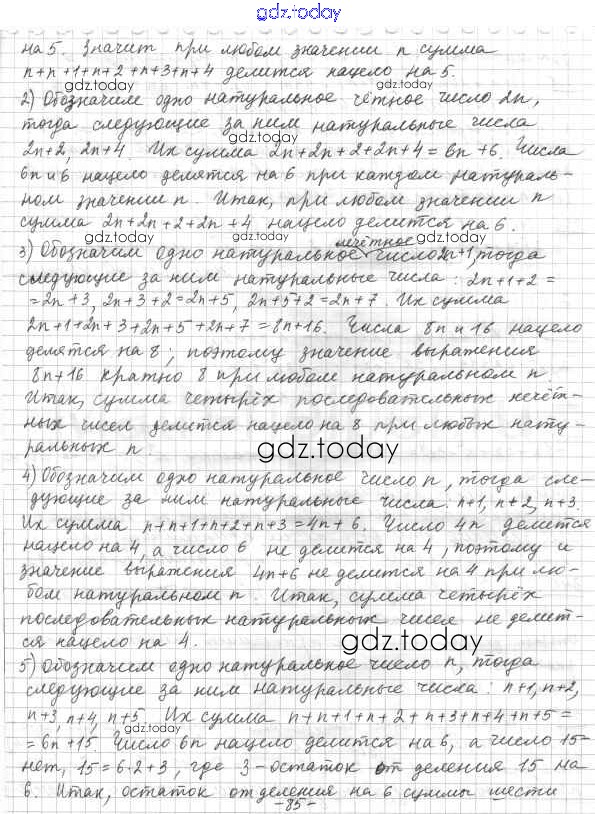 gdz.today
на 5. Значит при любом значении n сумма
n+n+1+n+2+n+3+n+4 делится нацело на 5.
gdz.today gdz.today
2) Обозначим одно натуральное чётное число 2n,
тогда следующие за ним натуральные числа
2n+2, 2n+4. Их сумма 2n+2n+2+2n+4=6n+6. Числа
6n и 6 нацело делятся на 6 при каждом натураль-
ном значении n. Итак, при любом значении n
сумма 2n+2n+2+2n+4 нацело делится на 6.
gdz.today gdz.today
нечётное
3) Обозначим одно натуральное число 2n+1, тогда
следующие за ним натуральные числа: 2n+1+2=
=2n+3, 2n+3+2=2n+5, 2n+5+2=2n+7. Их сумма
2n+1+2n+3+2n+5+2n+7=8n+16. Числа 8n и 16 нацело
делятся на 8; поэтому значение выражения
8n+16 кратно 8 при любом натуральном n.
Итак, сумма четырёх последовательных нечёт-
ных чисел делится нацело на 8 при любых нату-
ральных n.
gdz.today
4) Обозначим одно натуральное число n, тогда сле-
дующие за ним натуральные числа: n+1, n+2, n+3.
Их сумма n+n+1+n+2+n+3=4n+6. Число 4n делится
нацело на 4, а число 6 не делится на 4, поэтому и
значение выражения 4n+6 не делится на 4 при лю-
бом натуральном n. Итак, сумма четырёх
последовательных натуральных чисел не делит-
ся нацело на 4.
gdz.today
5) Обозначим одно натуральное число n, тогда
следующие за ним натуральные числа: n+1, n+2,
n+3, n+4, n+5. Их сумма n+n+1+n+2+n+3+n+4+n+5=
=6n+15. Число 6n нацело делится на 6, а число 15-
нет, 15=6·2+3, где 3-остаток от деления 15 на
6. Итак, остаток от деления на 6 суммы шести
-85-
gdz.today gdz.today
gdz.today gdz.today